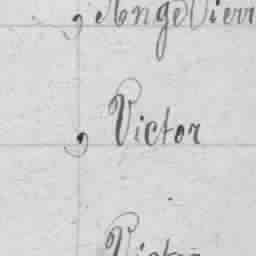 , Ange Pierr
, Victor
Victor